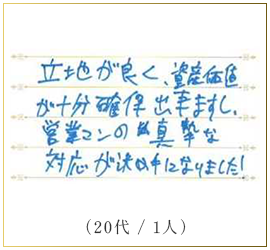 立地が良く、資産価値
が十分確保出来ますし、
営業マンの真摯な
対応が決め手になりました!
(20代 / 1人)